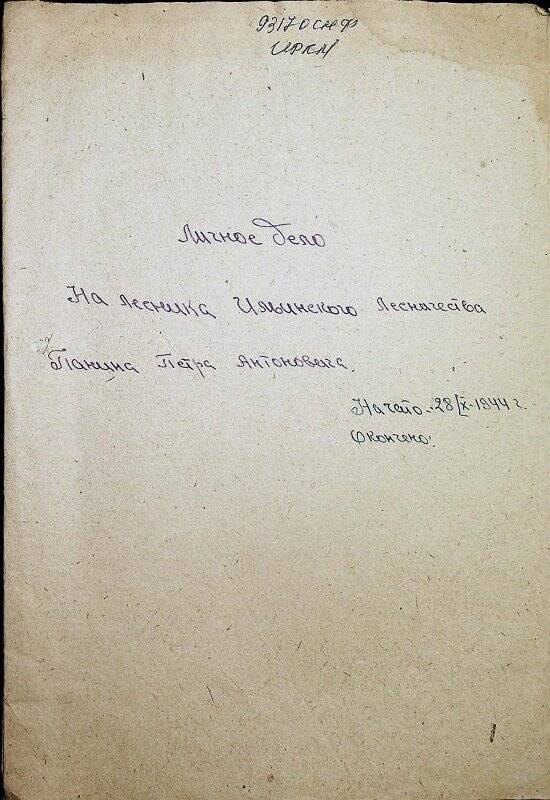 9317 ОСНФ
ИРКМ
Личное дело
На лесника Ильинского Лесничества
Панина Петра Антоновича.
Начато. 28/X-1944 г.
Окончено.